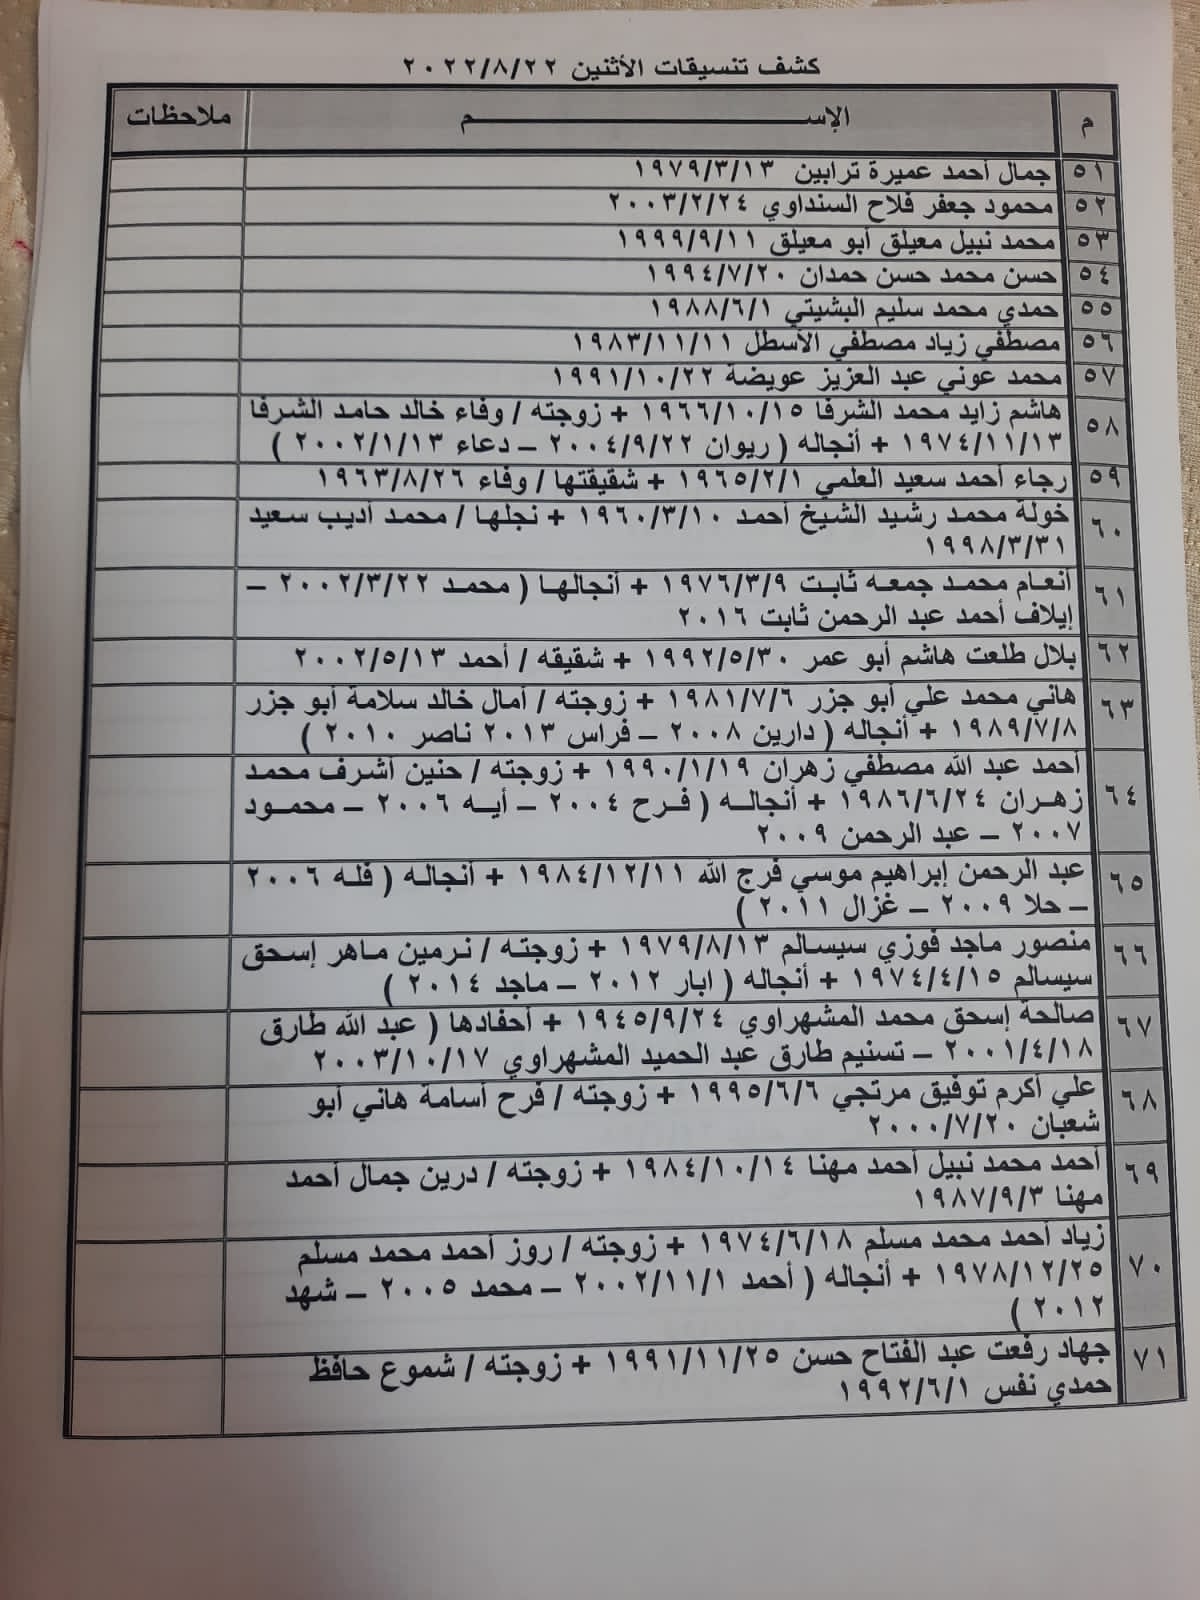 كشف تنسيقات الأثنين ٢٠٢٢/٨/٢٢
م الإســــــــم ملاحظات
٥١ جمال أحمد عميرة ترابين ١٩٧٩/٣/١٣
٥٢ محمود جعفر فلاح السنداوي ٢٠٠٣/٢/٢٤
٥٣ محمد نبيل معيلق أبو معيلق ١٩٩٩/٩/١١
٥٤ حسن محمد حسن حمدان ١٩٩٤/٧/٢٠
٥٥ حمدي محمد سليم البشيتي ١٩٨٨/٦/١
٥٦ مصطفي زياد مصطفي الأسطل ١٩٨٣/١١/١١
٥٧ محمد عوني عبد العزيز عويضة ١٩٩١/١٠/٢٢
٥٨ هاشم زايد محمد الشرفا ١٩٦٦/١٠/١٥ + زوجته / وفاء خالد حامد الشرفا
١٩٧٤/١١/١٣ + أنجاله ( ريوان ٢٠٠٤/٩/٢٢ – دعاء ٢٠٠٢/١/١٣ )
٥٩ رجاء أحمد سعيد العلمي ١٩٦٥/٢/١ + شقيقتها / وفاء ١٩٦٣/٨/٢٦
٦٠ خولة محمد رشيد الشيخ أحمد ١٩٦٠/٣/١٠ + نجلها / محمد أديب سعيد
١٩٩٨/٣/٣١
٦١ أنعام محمد جمعه ثابت ١٩٧٦/٣/٩ + أنجالها ( محمد ٢٠٠٢/٣/٢٢ –
إيلاف أحمد عبد الرحمن ثابت ٢٠١٦
٦٢ بلال طلعت هاشم أبو عمر ١٩٩٢/٥/٣٠ + شقيقه / أحمد ٢٠٠٢/٥/١٣
٦٣ هاني محمد علي أبو جزر ١٩٨١/٧/٦ + زوجته / أمال خالد سلامة أبو جزر
١٩٨٩/٧/٨ + أنجاله ( دارين ٢٠٠٨ – فراس ٢٠١٣ ناصر ٢٠١٠ )
٦٤ أحمد عبد الله مصطفي زهران ١٩٩٠/١/١٩ + زوجته / حنين أشرف محمد
زهران ١٩٨٦/٦/٢٤ + أنجاله ( فرح ٢٠٠٤ – أيه ٢٠٠٦ – محمود
٢٠٠٧ – عبد الرحمن ٢٠٠٩
٦٥ عبد الرحمن إبراهيم موسي فرج الله ١٩٨٤/١٢/١١ + أنجاله ( فله ٢٠٠٦
– حلا ٢٠٠٩ – غزال ٢٠١١ )
٦٦ منصور ماجد فوزي سيسالم ١٩٧٩/٨/١٣ + زوجته / نرمين ماهر إسحق
سيسالم ١٩٧٤/٤/١٥ + أنجاله ( ابار ٢٠١٢ – ماجد ٢٠١٤ )
٦٧ صالحة إسحق محمد المشهراوي ١٩٤٥/٩/٢٤ + أحفادها ( عبد الله طارق
٢٠٠١/٤/١٨ – تسنيم طارق عبد الحميد المشهراوي ٢٠٠٣/١٠/١٧
٦٨ علي أكرم توفيق مرتجي ١٩٩٥/٦/٦ + زوجته / فرح أسامة هاني أبو
شعبان ٢٠٠٠/٧/٢٠
٦٩ أحمد محمد نبيل أحمد مهنا ١٩٨٤/١٠/١٤ + زوجته / درين جمال أحمد
مهنا ١٩٨٧/٩/٣
٧٠ زياد أحمد محمد مسلم ١٩٧٤/٦/١٨ + زوجته / روز أحمد محمد مسلم
١٩٧٨/١٢/٢٥ + أنجاله ( أحمد ٢٠٠٢/١١/١ – محمد ٢٠٠٥ – شهد
٢٠١٢ )
٧١ جهاد رفعت عبد الفتاح حسن ١٩٩١/١١/٢٥ + زوجته / شموع حافظ
حمدي نفس ١٩٩٢/٦/١